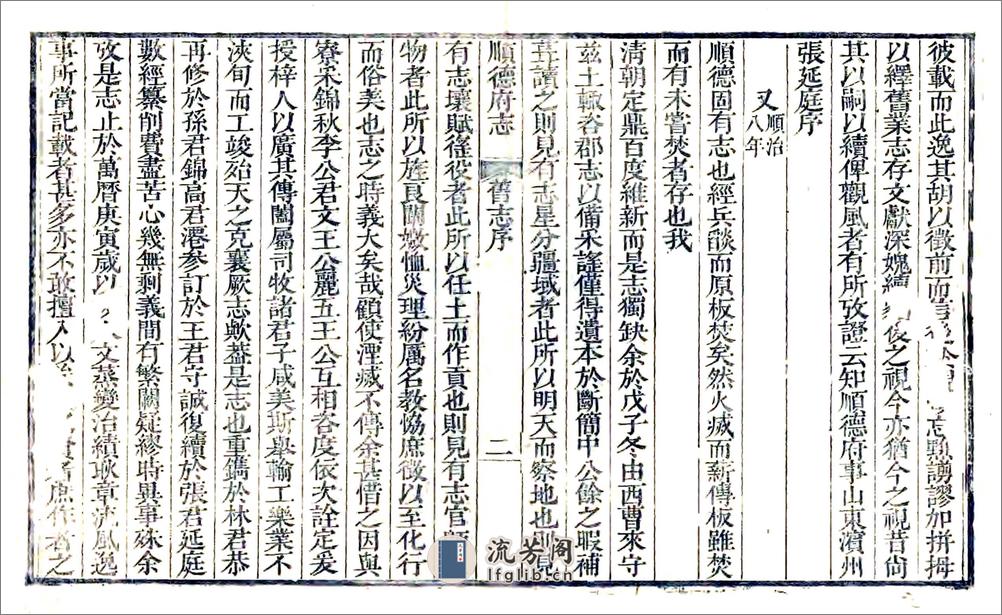 彼載而此逸其胡以徵前而信 忘黜謭謬加拼拇
以繹舊業志存文獻深媿續 後之視今亦猶今之視昔尙
其以嗣以續俾觀風者有所攷證云知順德府事山東濱州
張延庭序
又順治八年
順德固有志也經兵燹而原板焚矣然火烕而薪傳板雖焚
而有未嘗焚者存也我
清朝定鼎百度維新而是志獨缺余於戊子冬由西曹來守
兹土輙咨郡志以備采謠僅得遺本於斷簡中公餘之暇補
葺讀之則見有志星分疆域者此所以明天而察地也則見
順德府志 舊志序 二
有志壤賦徭役者此所以任土而作貢也則見有志官
物者此所以旌良闢媺恤災理紛厲名教恊庶徵以至化行
而俗美也志之時義大矣哉顧使湮烕不傳余甚借之因與
寮寀錦秋李公君文王公麗五王公互相咨度依次詮定爰
授梓人以廣其傳闔屬司牧諸君子咸美斯舉輸工樂業不
浹旬而工竣始天之克襄厥志歟葢是志也重鐫於林君恭
再修於孫君錦高君遷參訂於王君守誠復續於張君延庭
數經纂削費盡苦心幾無剩義間有繁闕疑繆時異事殊余
攷是志止於萬曆庚寅歲以 文蒸變治績耿章流風逸
事所當記載者甚多亦不敢擅入以 庶作者之
流芳阁
lfglib.cn